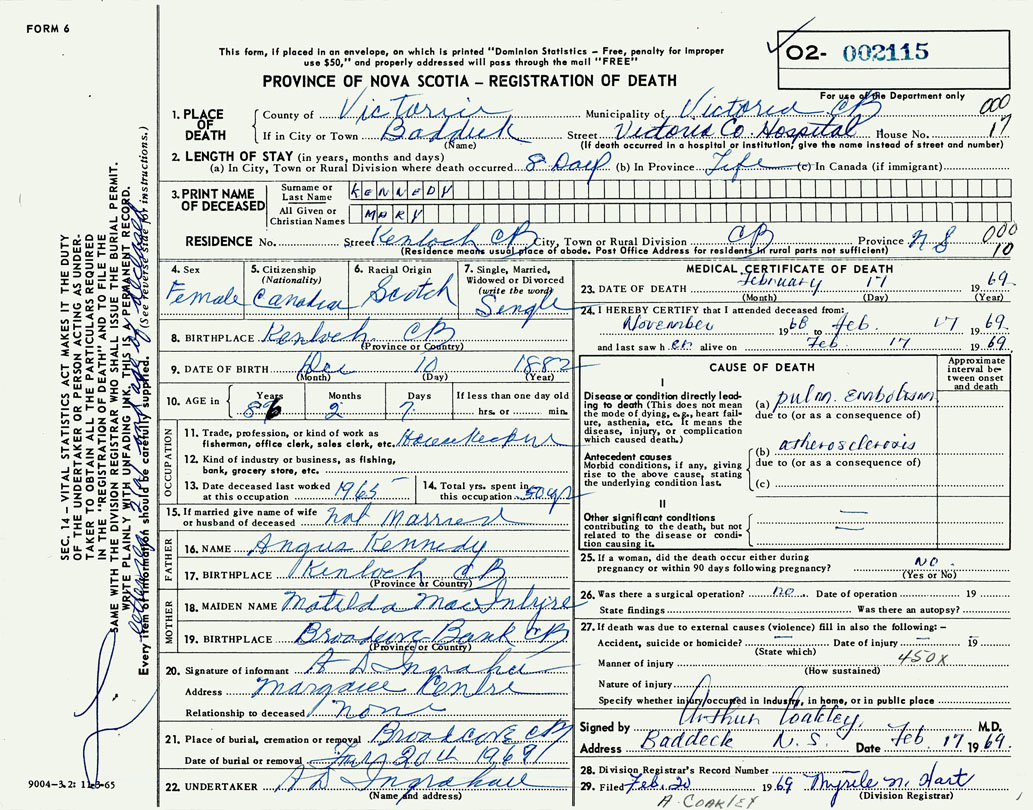 FORM 6
This form, if placed in an envelope, on which is printed "Dominion Statistics – Free, penalty for improper
use $50," and properly addressed will pass through the mail "FREE"
PROVINCE OF NOVA SCOTIA – REGISTRATION OF DEATH
O2- 002115
For use of the Department only
1. PLACE OF DEATH
County of Victoria Municipality of Victoria CB 000
If in City or Town Baddeck Street Victoria Co. Hospital House No. 17
(Name) (If death occurred in a hospital or institution, give the name instead of street and number)
2. LENGTH OF STAY (in years, months and days)
(a) In City, Town or Rural Division where death occurred 8 Days (b) In Province Life (c) In Canada (if immigrant)
3. PRINT NAME OF DECEASED
Surname or Last Name KENNEDY
All Given or Christian Names MARY
RESIDENCE No. Street Kenloch CB City, Town or Rural Division CB Province N S 000
(Residence means usual place of abode. Post Office Address for residents in rural parts not sufficient) 10
4. Sex Female
5. Citizenship (Nationality) Canadian
6. Racial Origin Scotch
7. Single, Married, Widowed or Divorced (write the word) Single
8. BIRTHPLACE Kenloch CB
(Province or Country)
9. DATE OF BIRTH Dec 10 1882
(Month) (Day) (Year)
10. AGE in Years 86 Months 2 Days 7 If less than one day old hrs. or min.
OCCUPATION
11. Trade, profession, or kind of work as
fisherman, office clerk, sales clerk, etc. Housekeeper
12. Kind of industry or business, as fishing,
bank, grocery store, etc.
13. Date deceased last worked at this occupation 1965
14. Total yrs. spent in this occupation 50 yr
15. If married give name of wife
or husband of deceased not Married
FATHER
16. NAME Angus Kennedy
17. BIRTHPLACE Kenloch CB
(Province or Country)
MOTHER
18. MAIDEN NAME Matilda MacIntyre
19. BIRTHPLACE Broadcove Bank CB
(Province or Country)
20. Signature of informant A D Ingraham
Address Margaree Centre
Relationship to deceased none
21. Place of burial, cremation or removal Broadcove CB
Date of burial or removal 20th 1969
22. UNDERTAKER AD Ingraham
(Name and address)
MEDICAL CERTIFICATE OF DEATH
23. DATE OF DEATH February 17 1969
(Month) (Day) (Year)
24. I HEREBY CERTIFY that I attended deceased from:
November 1968 to Feb. 17 1969
and last saw her alive on Feb. 17 1969
CAUSE OF DEATH
Approximate interval between onset and death
I
Disease or condition directly leading to death (This does not mean
the mode of dying, e.g., heart failure, asthenia, etc. It means the
disease, injury, or complication which caused death.)
(a) pulm. embolism
due to (or as a consequence of)
Antecedent causes
Morbid conditions, if any, giving
rise to the above cause, stating
the underlying condition last.
(b) atherosclerosis
due to (or as a consequence of)
(c)
II
Other significant conditions
contributing to the death, but not
related to the disease or condition causing it.
25. If a woman, did the death occur either during
pregnancy or within 90 days following pregnancy? NO.
(Yes or No)
26. Was there a surgical operation? no. Date of operation 19
State findings Was there an autopsy?
27. If death was due to external causes (violence) fill in also the following:–
Accident, suicide or homicide? Date of injury 19
(State which)
Manner of injury 450X
(How sustained)
Nature of injury
Specify whether injury occurred in Industry, in home, or in public place
Signed by Arthur Coakley, M.D.
Address Baddeck N. S. Date Feb 17 1969.
28. Division Registrar's Record Number
29. Filed Feb. 20 1969 Myrtle N. Hart
(Division Registrar)
A. COAKLEY
SEC. 14 – VITAL STATISTICS ACT MAKES IT THE DUTY
OF THE UNDERTAKER OR PERSON ACTING AS UNDER-
TAKER TO OBTAIN ALL THE PARTICULARS REQUIRED
IN THE "REGISTRATION OF DEATH" AND TO FILE THE
SAME WITH THE DIVISION REGISTRAR WHO SHALL ISSUE THE BURIAL PERMIT.
WRITE PLAINLY WITH UNFADING INK, THIS IS A PERMANENT RECORD.
Every item of information should be carefully supplied. (See reverse side for instructions.)
9004-3.2: 11-3-65